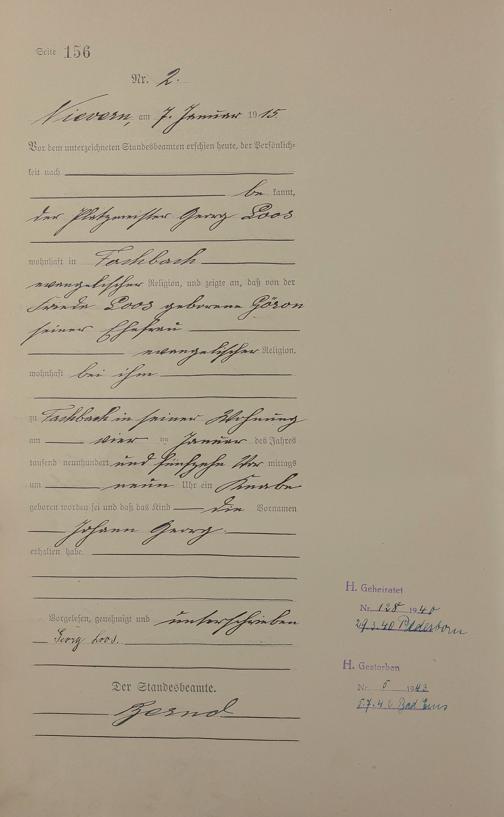 Seite 156
Nr. 2.
Nievern, am 7. Januar 1915.
Vor dem unterzeichneten Standesbeamten erschien heute, der Persönlich-
keit nach
be kannt,
der Platzmeister Georg Loos
wohnhaft in Fachbach
evangelischer Religion, und zeigte an, daß von der
Frieda Loos geborene
seiner Ehefrau
evangelischer Religion,
wohnhaft bei ihm
zu Fachbach in seiner Wohnung
am vier ten Januar des Jahres
tausend neunhundert und fünfzehn Vor mittags
um neun Uhr ein Knabe
geboren worden sei und daß das Kind die Vornamen
Johann Georg
erhalten habe.
Vorgelesen, genehmigt und unterschrieben
Georg Loos.
Der Standesbeamte.
H. Geheiratet
Nr. 128 1940
29.3.40 Paderborn
H. Gestorben
Nr. 5 1943
Bad Ems